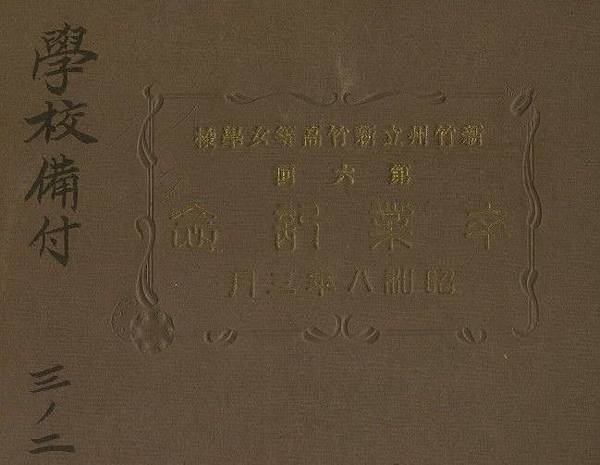 學校備付
三ノ二
新竹州立新竹高等女學校
第六回
卒業記念
昭和八年三月